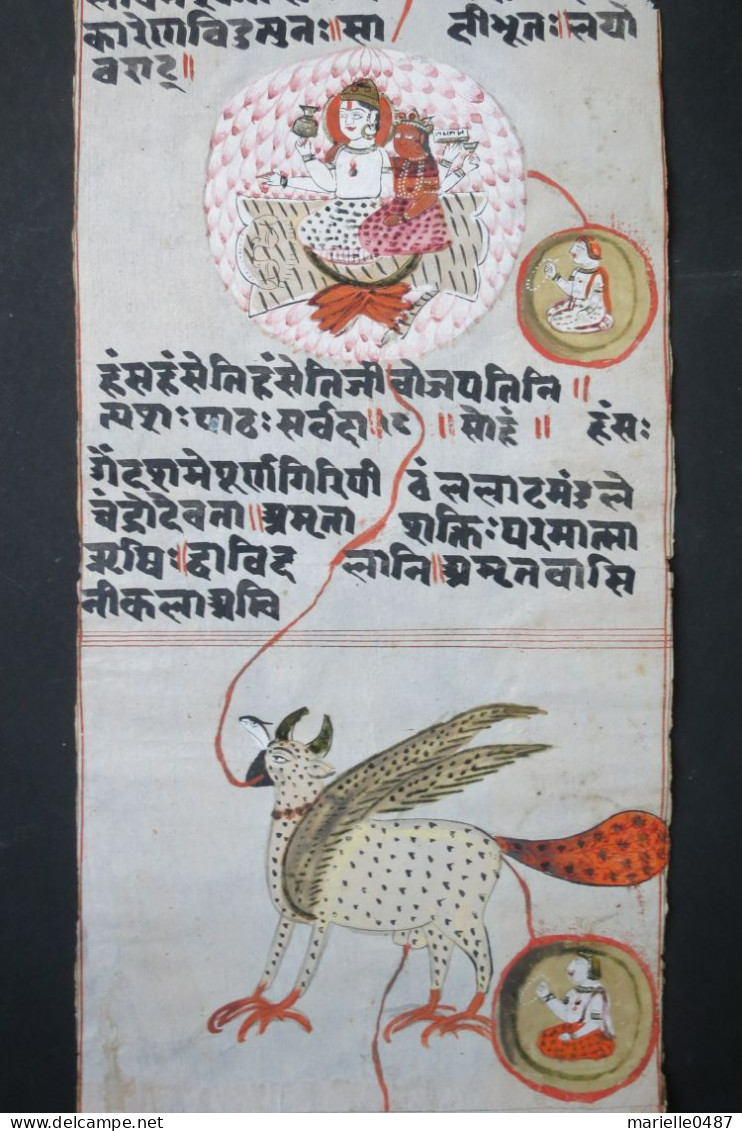 कारेणविदुमुनः॥सा लीभूतः॥लयो
वराट्॥
हंसहंसेतिहंसेतिजीवोजपतिनि॥
त्यशःपाठःसर्वदा॥ ॥सोहं॥ हंसः
पूर्णगिरिपी ललाटमंडले
चंद्रोदेवता॥अमृता शक्तिःपरमात्मा
ऋषिः॥द्वाविद लानि॥अमृतवासि
नीकलाअश्वि
www.delcampe.net
marielle0487